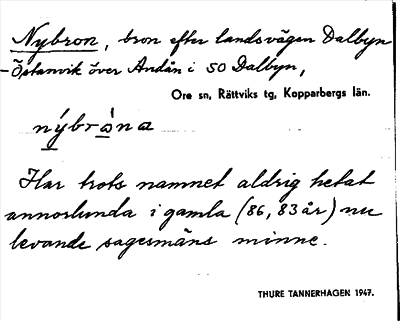 Nybron, bron efter landsvägen Dalbyn
-Östanvik över Andån i SO Dalbyn,
Ore sn, Rättviks tg, Kopparbergs län.
nýbràna
Har trots namnet aldrig hetat
annorlunda i gamla (86, 83 år) nu
levande sagesmäns minne.
THURE TANNERHAGEN 1947.